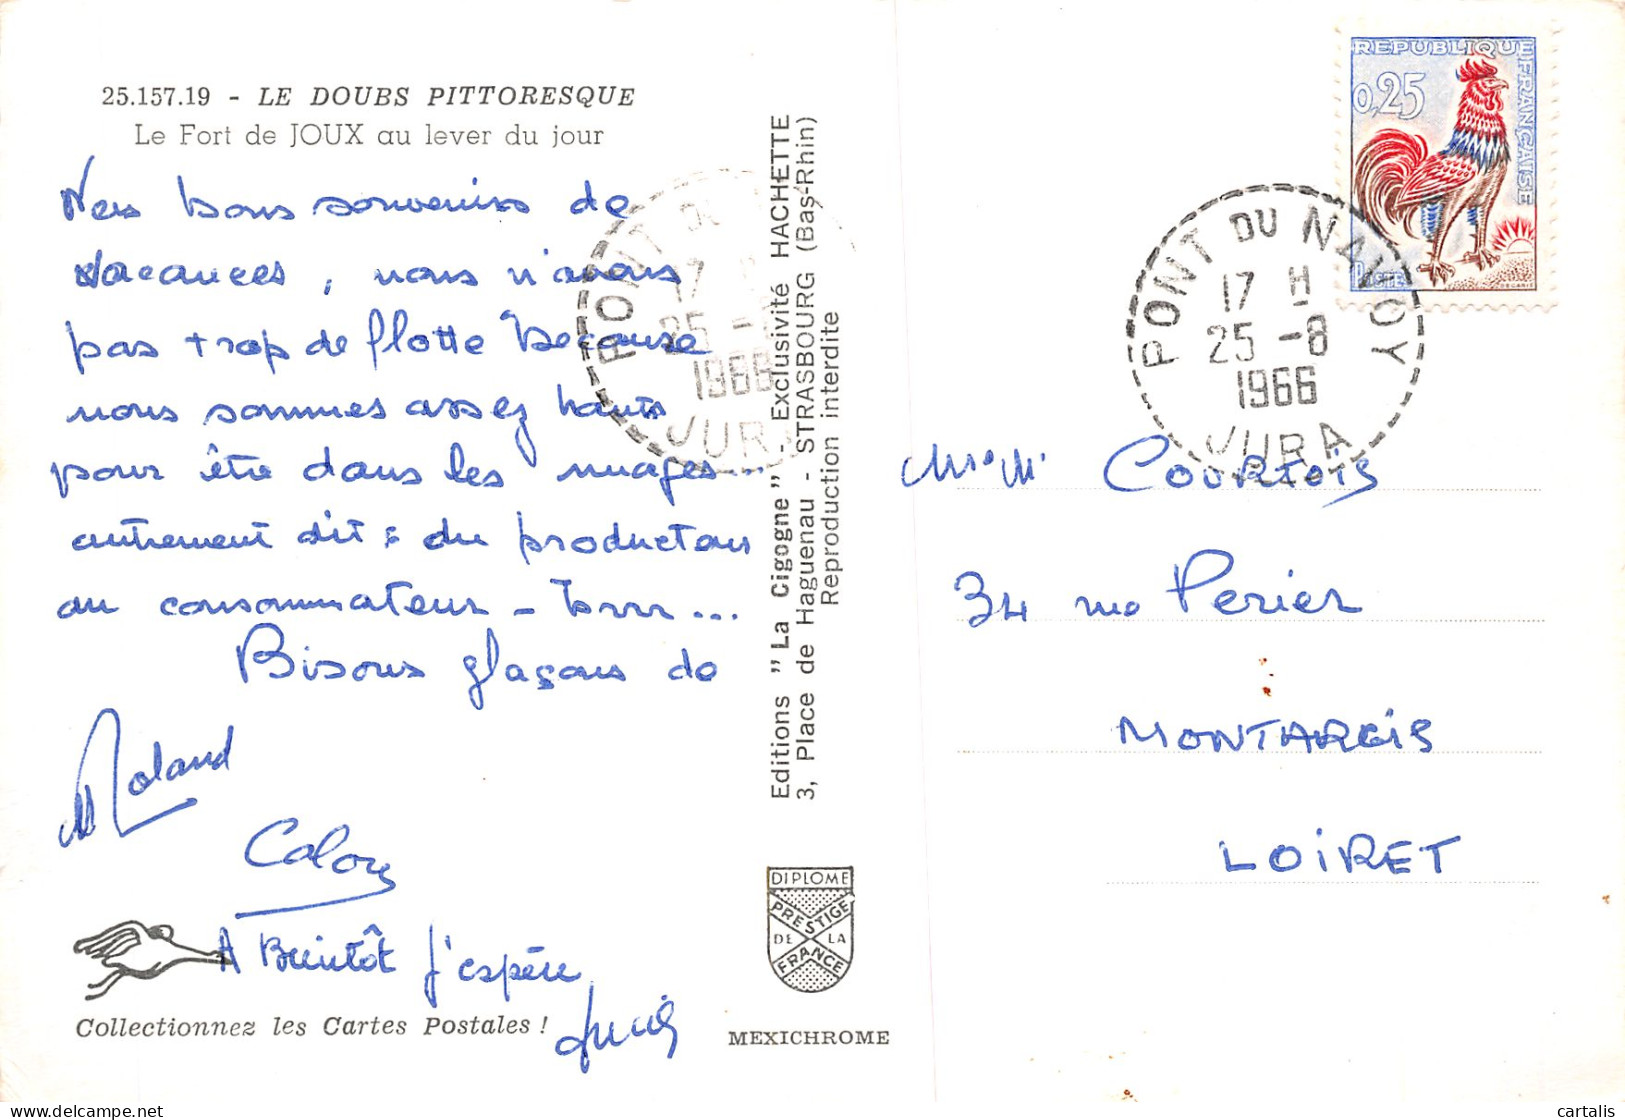 25.157.19 - LE DOUBS PITTORESQUE
Le Fort de JOUX au lever du jour
bons souvenirs de
vacances, nous n'avons
pas trop de flotte because
nous sommes assez hauts
pour être dans les nuages...
autrement dit : du producteur
au consommateur - brrr...
Bisous glaçons de
Roland
A Bientôt j'espère
Collectionnez les Cartes Postales !
PONT DU
17
25 -
1966
JURA
Editions "La Cigogne" - Exclusivité HACHETTE
3, Place de Haguenau - STRASBOURG (Bas-Rhin)
Reproduction interdite
DIPLOME
PRESTIGE
DE LA
FRANCE
MEXICHROME
REPUBLIQUE FRANÇAISE
0,25
POSTES
DECARIS
PONT DU NAVOY
17 H
25 -8
1966
JURA
COURTOIS
34 rue Perier
MONTARGIS
LOIRET
delcampe.net
cartalis